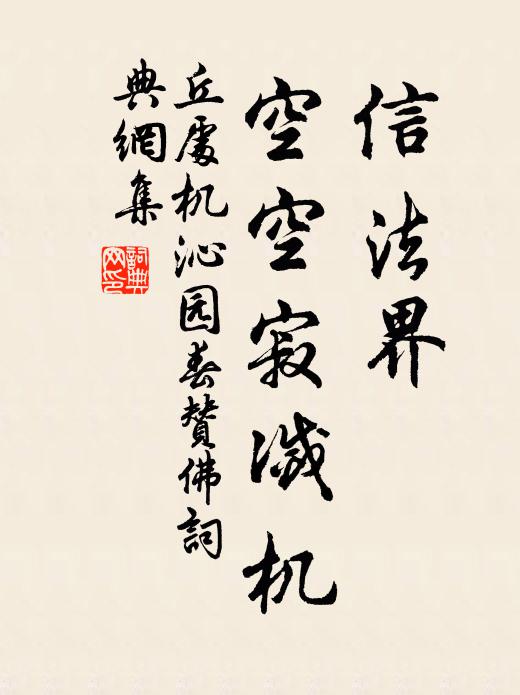 信法界
空空寂滅机
丘處机沁园春贊佛詞
典網集
詞典
网印